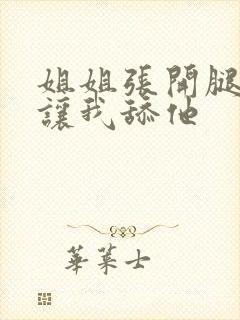 姐姐張開腿
讓我舔他
華萊士